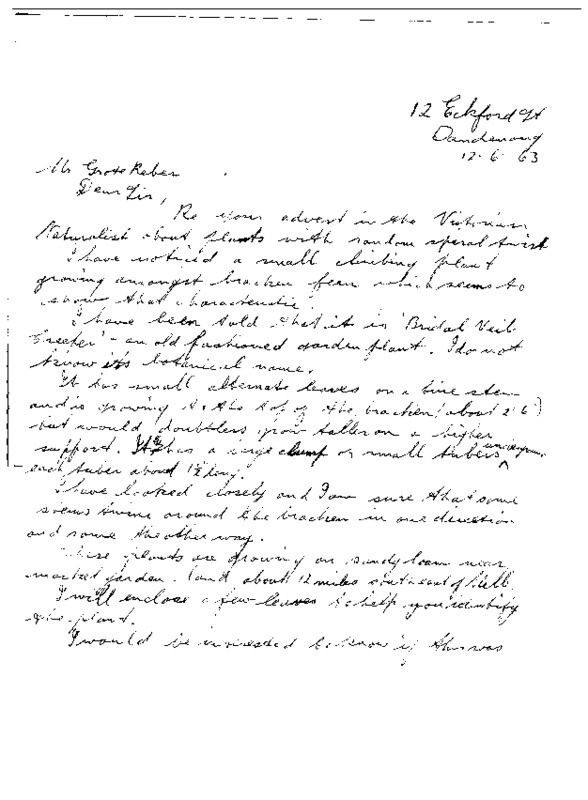 12 Eckford St
Dandenong
12. 6 63
Mr Grote Reber
Dear Sir,
Re your advert in the Victorian
Naturalist about plants with random speral twist
I have noticed a small climbing plant
growing amongst bracken fern which seems to
show that characteristic.
I have been told that it is 'Bridal Veil
Creeper' - an old fashioned garden plant. I do not
know its botanical name.
It has small alternate leaves on a fine stem
and is growing to the top of the bracken (about 2'6")
but would doubtless grow taller on a higher
support. It has a large clump of small tubers underground
each tuber about 1½ long.
I have looked closely and I am sure that some
stems twine around the bracken in one direction
and some the other way.
These plants are growing on sandy loam near
market garden land about 12 miles south east of
I will enclose a few leaves to help you identify
the plant.
I would be interested to know if this was